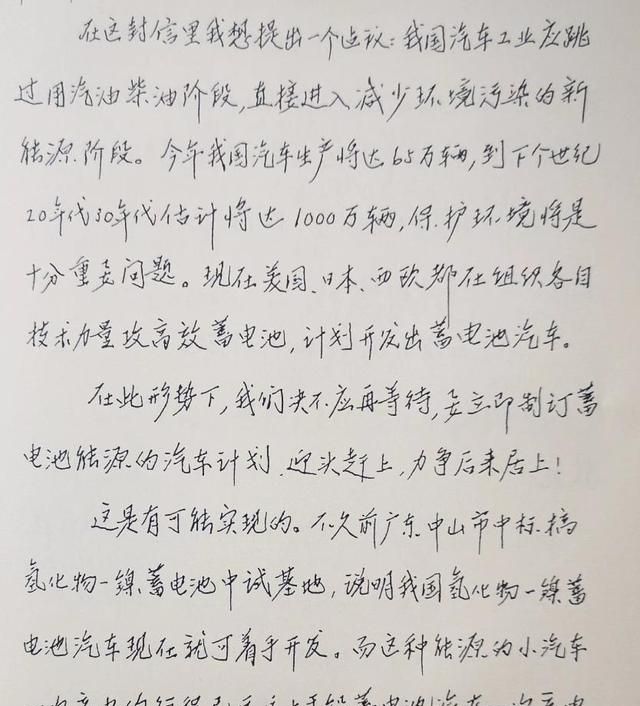 在这封信里我想提出一个建议：我国汽车工业应跳
过用汽油柴油阶段，直接进入减少环境污染的新
能源阶段。今年我国汽车生产将达65万辆，到下个世纪
20年代30年代估计将达1000万辆，保护环境将是
十分重要问题。现在美国、日本、西欧都在组织各自
技术力量攻高效蓄电池，计划开发出蓄电池汽车。
在此形势下，我们决不应再等待，要立即制订蓄
电池能源的汽车计划，迎头赶上，力争后来居上！
这是有可能实现的。不久前广东中山市中标，搞
氢化物—镍蓄电池中试基地，说明我国氢化物—镍蓄
电池汽车现在就可着手开发。而这种能源的小汽车
一次充电的行程